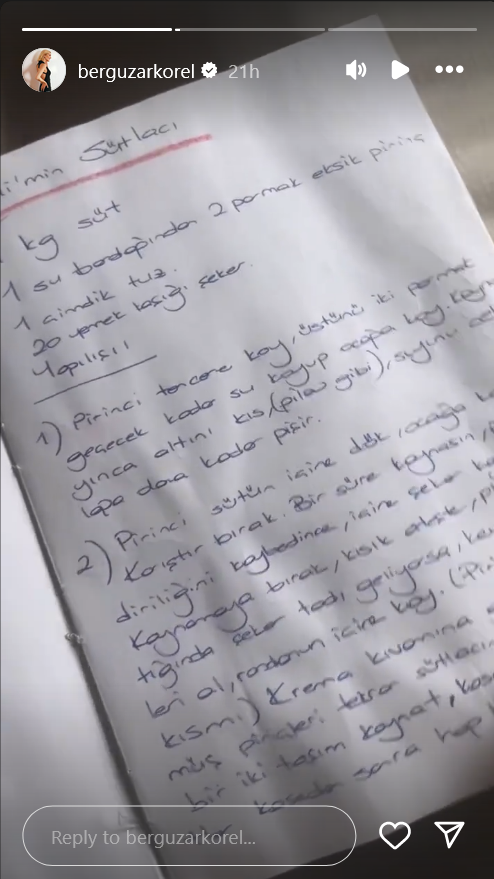 berguzarkorel 21h
i'min Sütlacı
kg süt
1 su bardağından 2 parmak eksik pirinç
1 çimdik tuz.
20 yemek kaşığı şeker.
Yapılışı!
1) Pirinci tencere koy, üstünü iki parmak
geçecek kadar su koyup ocağa koy.
yınca altını kıs (pilav gibi), suyunu
lapa olana kadar pişir.
2) Pirinci sütün içine dök, ocağa
Karıştır bırak. Bir süre kaynasın,
diriliğini kaybedince, içine şeker
Kaynamaya bırak, kısık ateşk,
tığında şeker tadı geliyorsa,
leri al, rondonun içine koy. (Piri
kısmı) Krema kıvamına
müş pirinçleri tekrar sütlacı
bir iki taşım kaynat,
sonra hop
Reply to berguzarkorel...